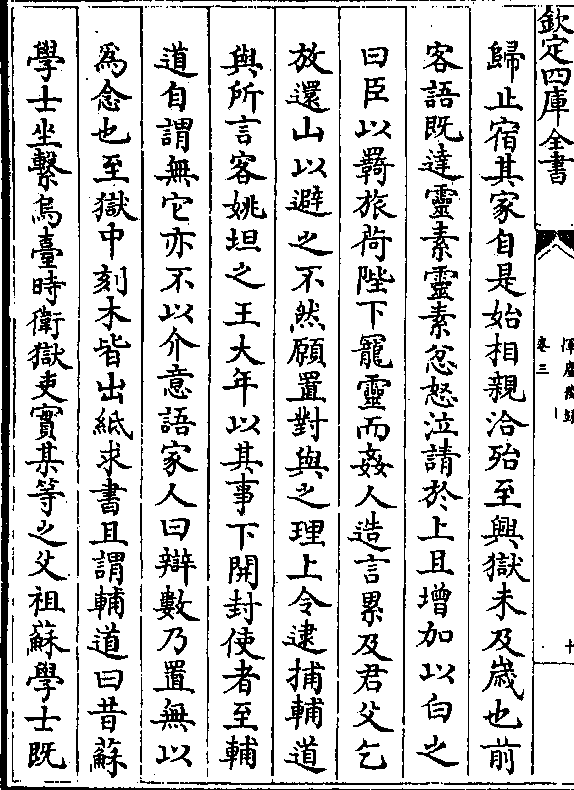 欽定四庫全書
卷三
歸止宿其家自是始相親洽殆至興獄未及歳也前
客語既達靈素靈素忿怒泣請於上且增加以白之
曰臣以羇旅荷陛下寵靈而姦人造言累及君父乞
放還山以避之不然願置對與之理上令逮捕輔道
與所言客姚坦之王大年以其事下開封使者至輔
道自謂無它亦不以介意語家人曰辯數乃置無以
為念也至獄中刻木皆出紙求書且謂輔道曰昔蘇
學士坐繫烏臺時衛獄吏實某等之父祖蘇學士既